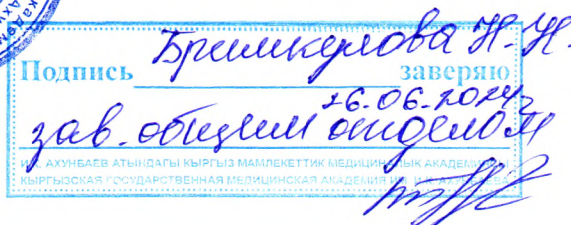 Подпись Бримкулова Н.Н. заверяю
26.06.2024г
зав. общим отделом
И.К. АХУНБАЕВ АТЫНДАГЫ КЫРГЫЗ МАМЛЕКЕТТИК МЕДИЦИНАЛЫК АКАДЕМИЯСЫ
КЫРГЫЗСКАЯ ГОСУДАРСТВЕННАЯ МЕДИЦИНСКАЯ АКАДЕМИЯ ИМ. И.К. АХУНБАЕВА